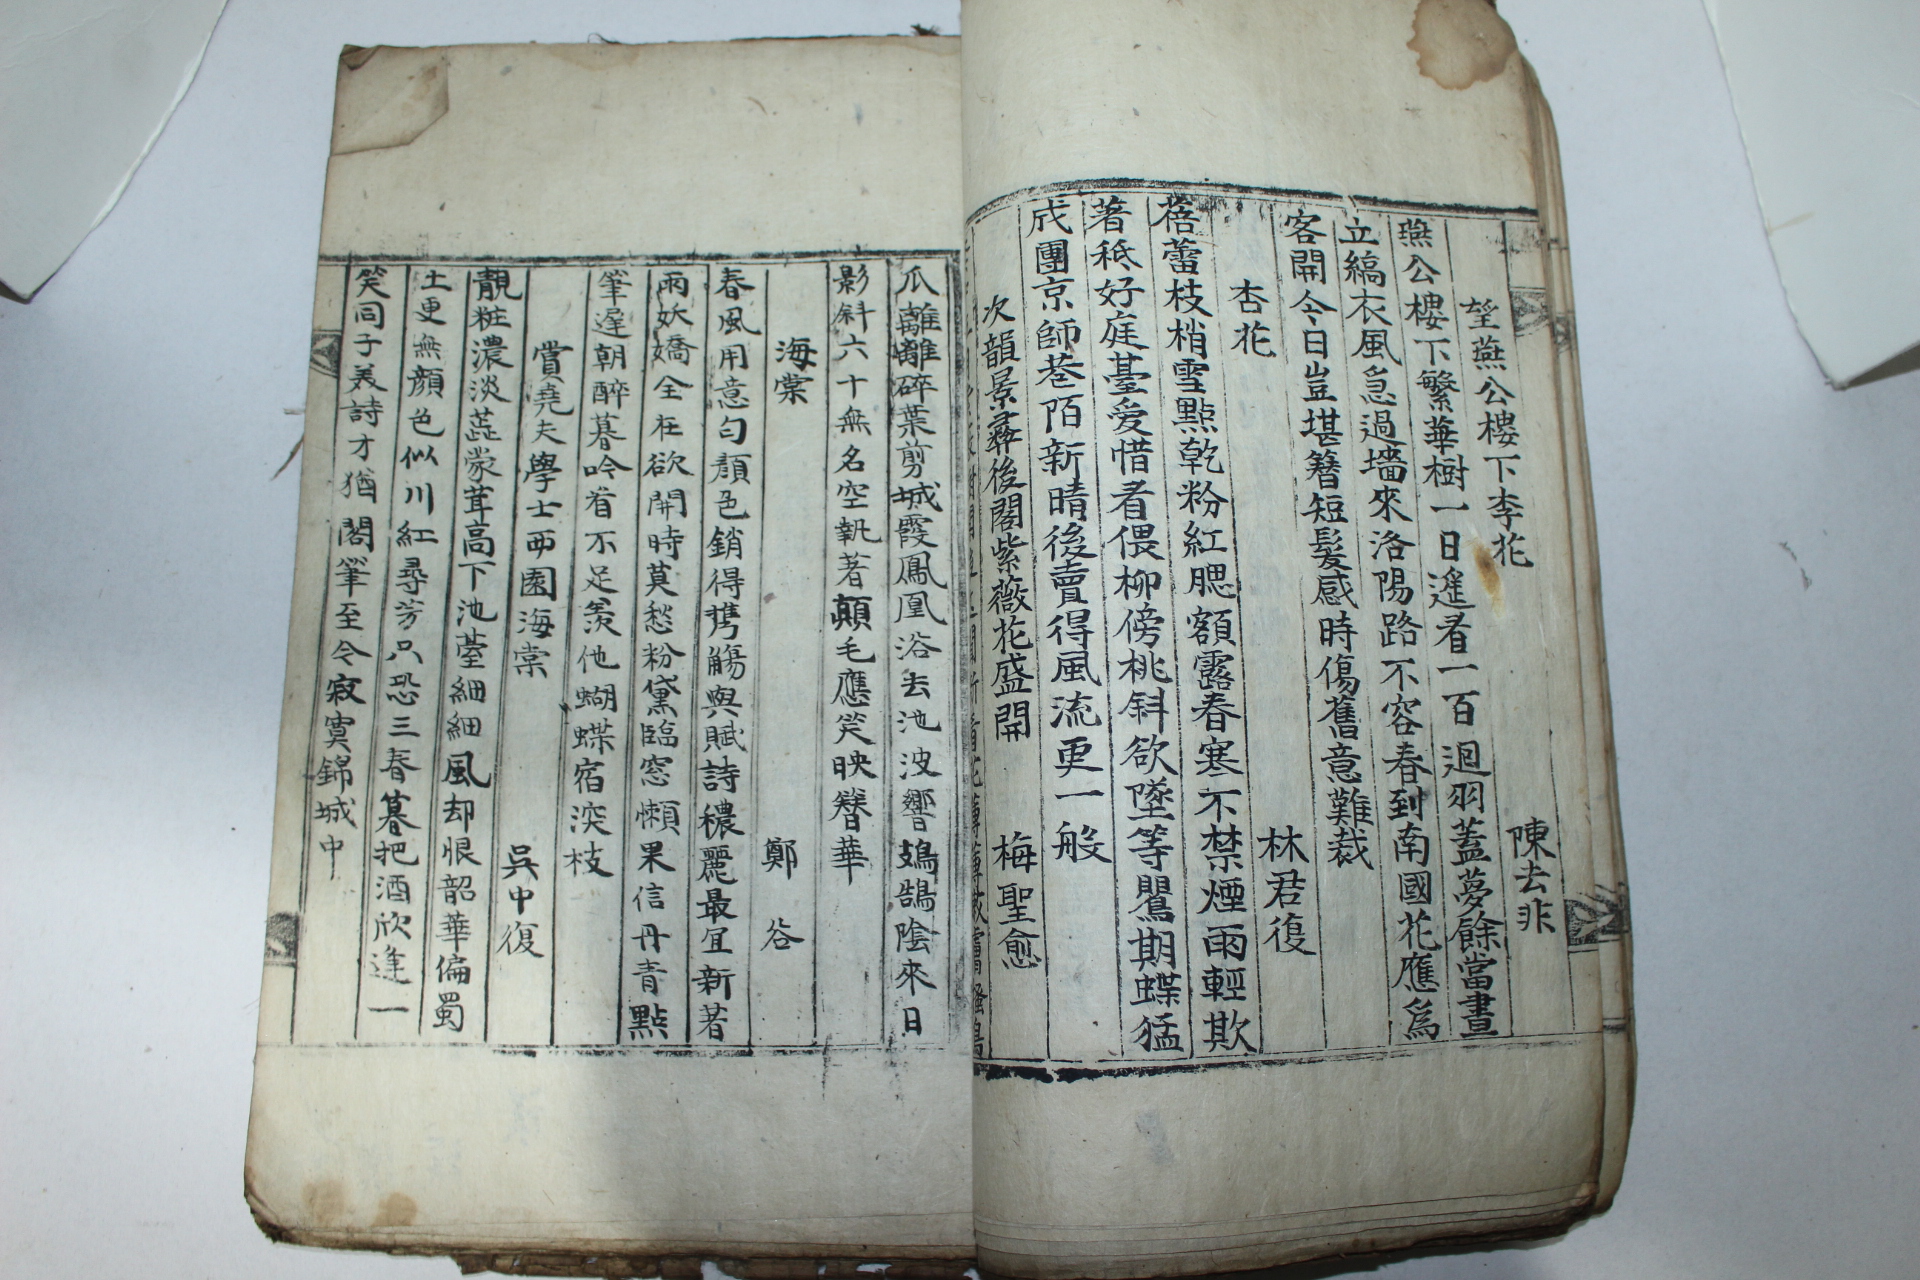 望燕公樓下李花　陳去非
燕公樓下繁華樹一日遙看一百迴羽蓋夢餘當晝
立縞衣風急過墻來洛陽路不容春到南國花應爲
客開今日豈堪簪短髮感時傷舊意難裁
杏花　林君復
蓓蕾枝梢雪點乾粉紅腮額露春寒不禁煙雨輕欺
著秪好庭臺愛惜看偎柳傍桃斜欲墜等鸎期蝶猛
成團京師巷陌新晴後賣得風流更一般
次韻景彝後閣紫薇花盛開　梅聖愈
爪離離碎葉剪城霞鳳凰浴去池波響鳷鵲陰來日
影斜六十無名空執著顛毛應笑映簪華
海棠　鄭谷
春風用意匀顏色銷得携觴與賦詩穠麗最宜新著
雨妖嬌全在欲開時莫愁粉黛臨窓懶梁信丹青點
筆遲朝醉暮吟看不足羨他蝴蝶宿深枝
賞堯夫學士西園海棠　吳中復
靚粧濃淡蘂蒙茸高下池臺細細風却恨韶華偏蜀
土更無顔色似川紅尋芳只恐三春暮把酒欣逢一
笑同子美詩才猶閣筆至今寂寞錦城中